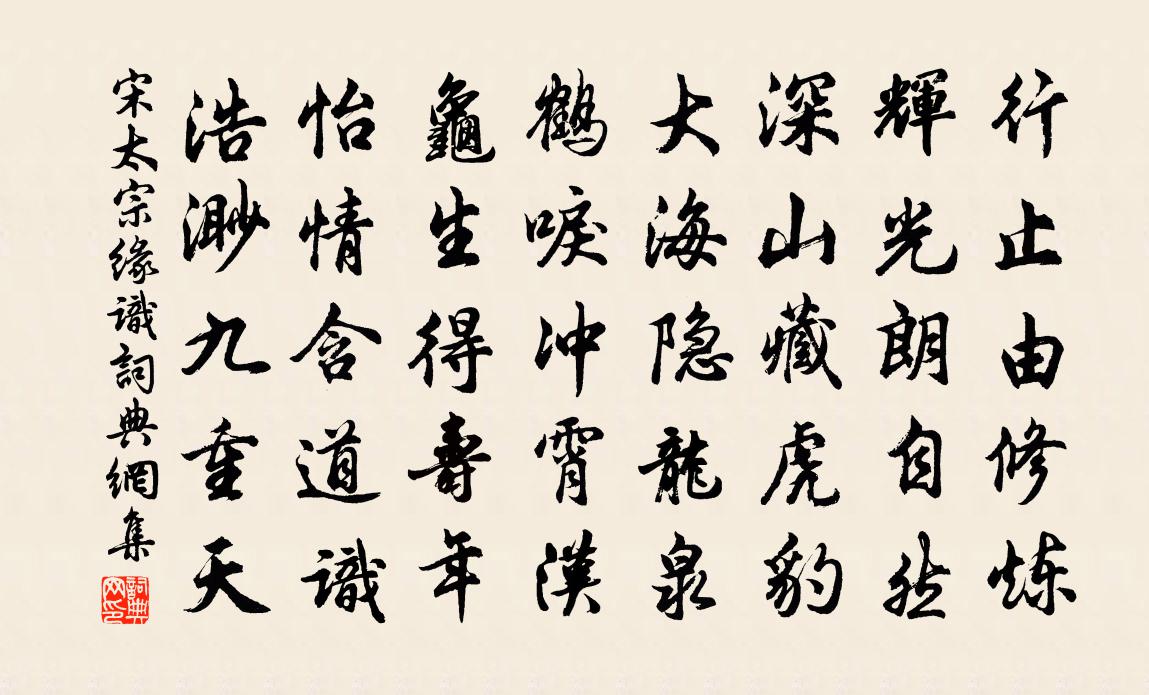 行止由修炼
輝光朗自然
深山藏虎豹
大海隐龍泉
鶴唳冲霄漢
龜生得壽年
怡情含道識
浩渺九重天
宋太宗缘識詞典網集
詞典網印